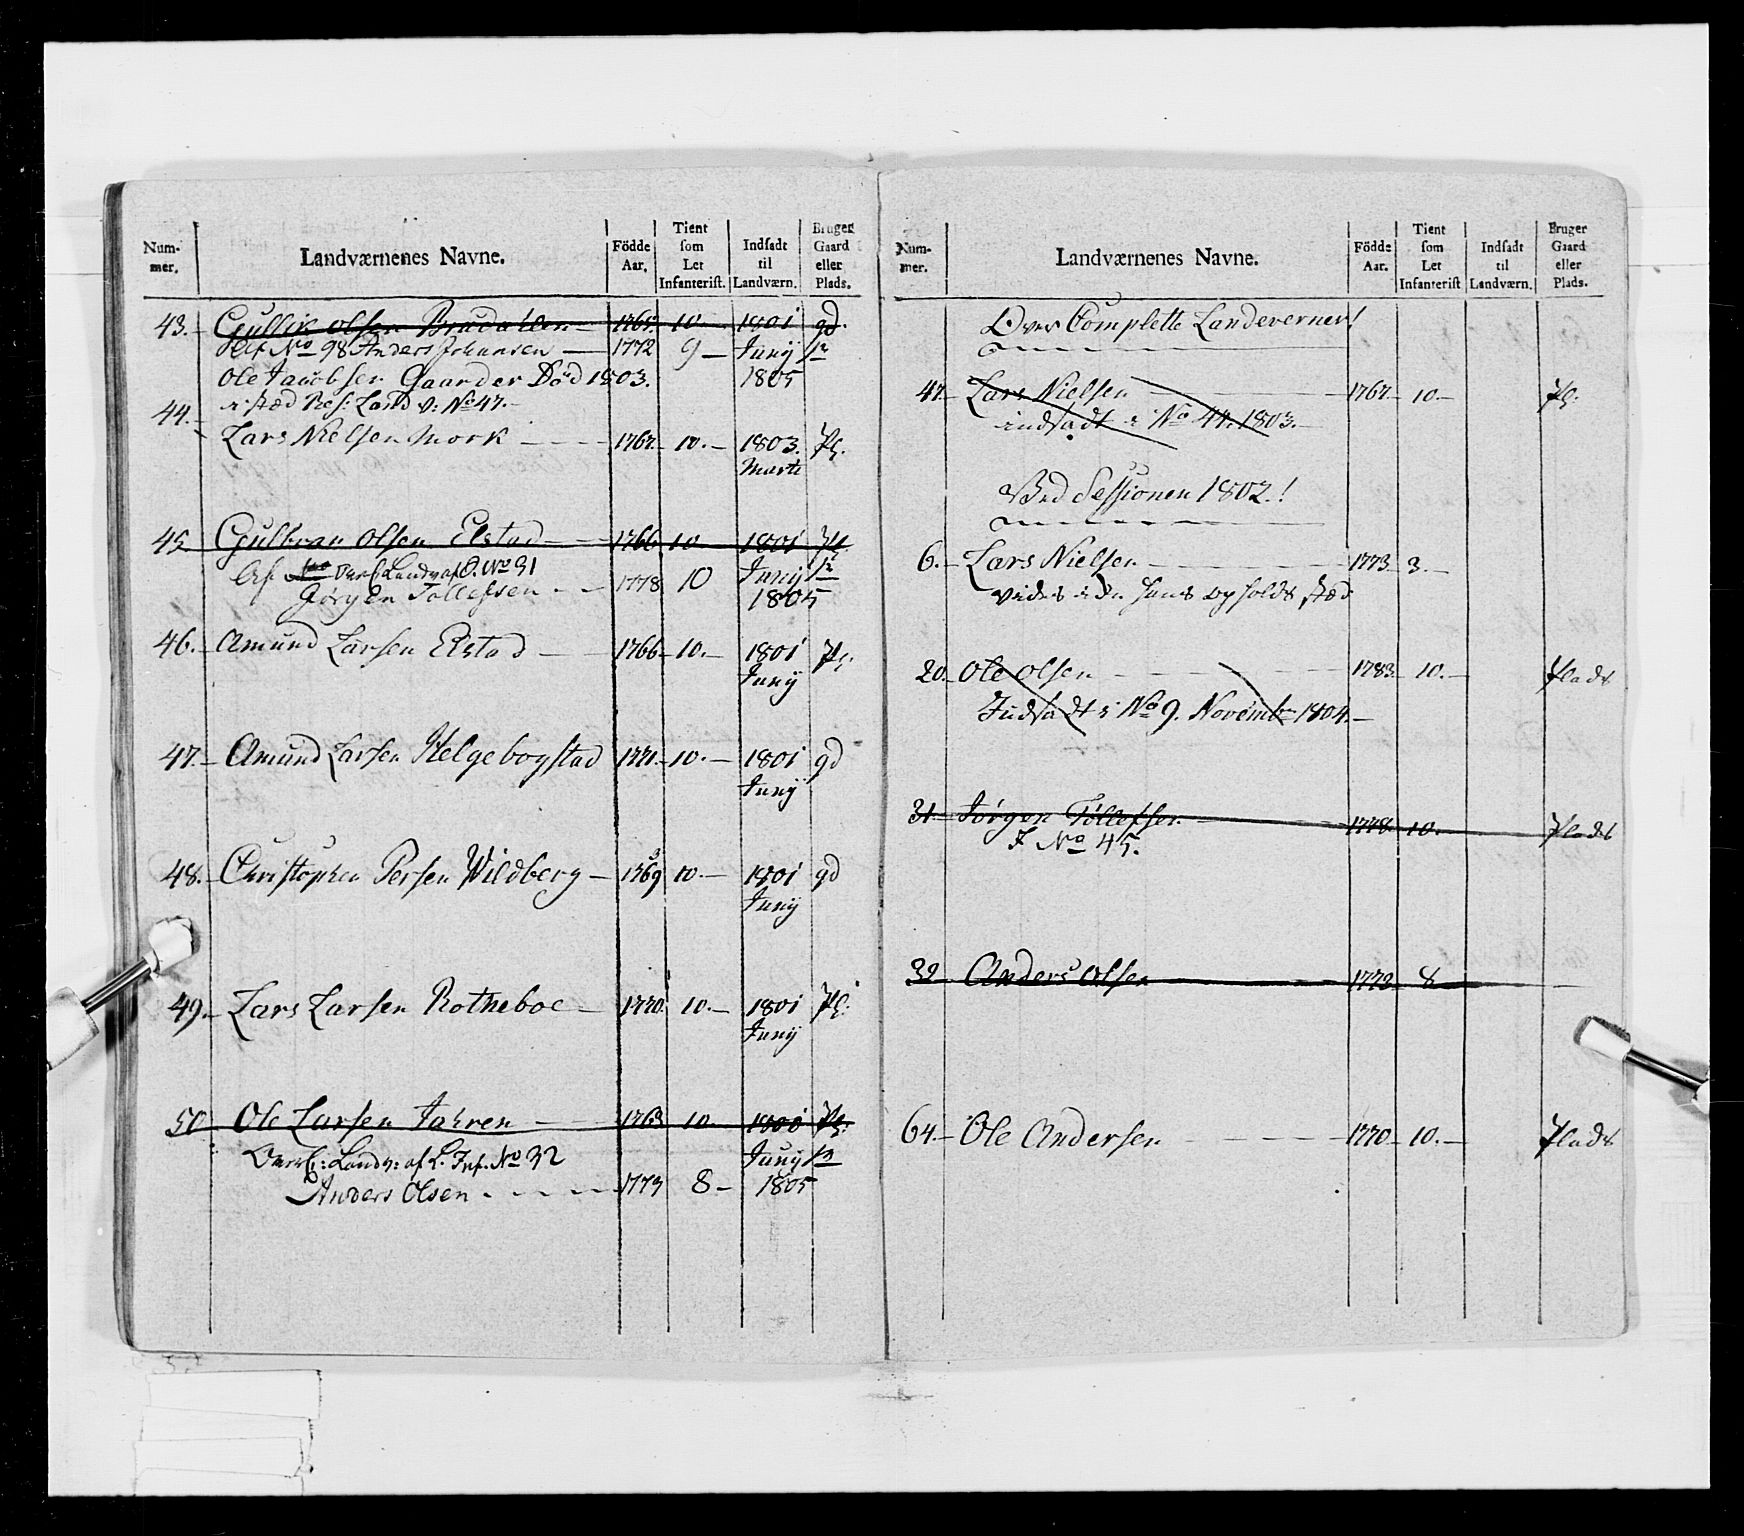 Num-mer. Landværnenes Navne. Födde Aar. Tient som Let Infanterist. Indsadt til Landværn. Bruger Gaard eller Plads.
43. Gullik Olsen Brudalen 1765 10 1801 gd.
Af No 98 Anders Johansen 1772 9 Junij
Ole Jacobsen Gaarder Död 1803. 1805
44. i stæd Res: Land v: No 47.
Lars Nielsen Mork 1767. 10. 1803. Pl.
Marti
45 Gulbran Olsen Elstad 1766 10 1801 Pl.
Af Overc. Landv af No 31 Junij
Jörgen Tollefsen 1778 10 1805
46. Amund Larsen Elstad 1766 10. 1801 Pl.
Junij
47. Amund Larsen Helgebogstad 1771. 10. 1801 gd
Junij
48. Christopher Persen Wildberg 1769 10. 1801 gd
Junij
49. Lars Larsen Rotneboe 1770. 10. 1801 Pl.
Junij
50 Ole Larsen Jahren 1763 10 1801 Pl.
Overc: Landv: af L. Inf. No 32 Junij
Anders Olsen 1773 8 1805
Num-mer. Landværnenes Navne. Födde Aar. Tient som Let Infanterist. Indsadt til Landværn. Bruger Gaard eller Plads.
Over Complette Landeverner!
47. Lars Nielsen 1767. 10. Pl.
indsadt i No 44. 1803.
Ved Sessionen 1802.!
6. Lars Nielsen 1773 3.
vides ide hans opholds stæd
20. Ole Olsen 1783 10. Plads
Indsadt i No 9. Novembr 1804.
31. Jörgen Tollefsen 1778 10. Plads
I No 45.
32 Anders Olsen 1773 8
64. Ole Andersen 1770 10. Plads